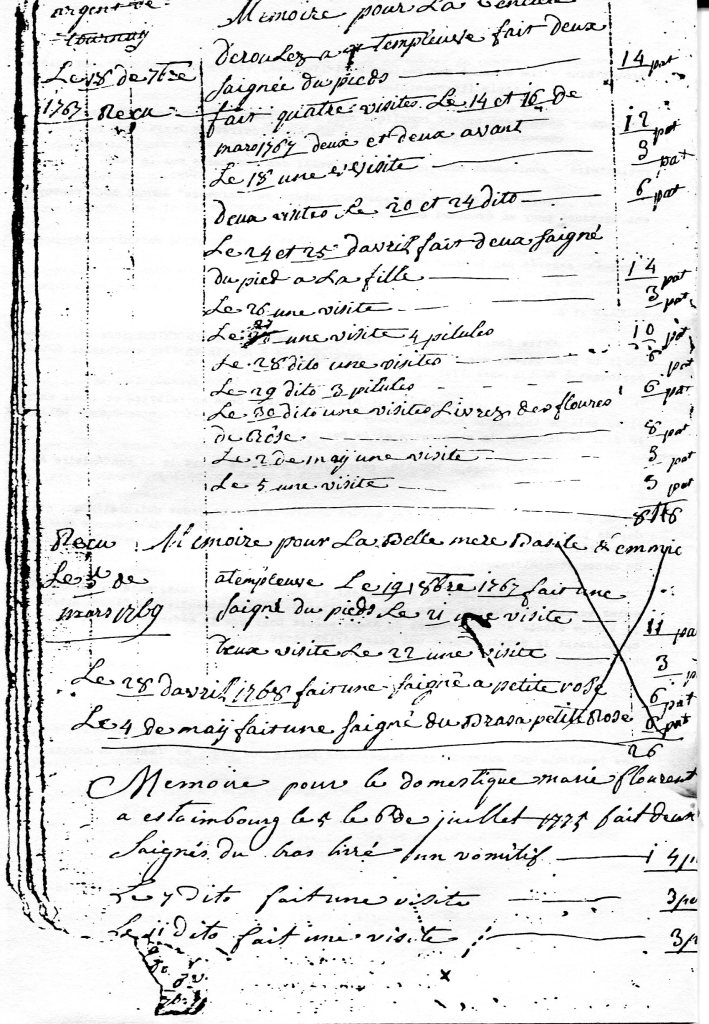 argent de
tournay
Memoire pour La
Deroulez a templeuse fait deux
saignée du pieds 14 pat
Le 18 de 7bre
1767 Recu
fait quatre visites Le 14 et 16 de
mars 1767 deux et deux avant 12 pat
Le 18 une visite 3 pat
deux visites Le 20 et 24 dito 6 pat
Le 24 et 25 davril fait deux saigné
du pied a La fille 14 pat
Le 26 une visite 3 pat
Le 27 une visite 4 pilules 10 pat
Le 28 dito une visites 6 pat
Le 29 dito 3 pilules 6 pat
Le 30 dito une visites Livrez des floures
de 8 pat
Le 2 de may une visite 3 pat
Le 5 une visite 3 pat
Recu
Le de
mars 1769
Memoire pour La Belle mere Basile
a templeuse Le 19 8bre 1767 fait une
saigné du pieds Le 21 une visite 11 pa
deux visite Le 22 une visite 3 p
Le 28 davril 1768 fait une saigné a petite rose 6 pat
Le 4 de maÿ fait une saigné du Brasa petitt Rose 6 pat
26
Memoire pour le domestique marie flourent
a estaimbourg le 5 le 6 de juillet 1775 fait deux
saignés du bras livré un vomitif 14 p
Le 7 dito fait une visite 3 pa
Le 11 dito fait une visite 3 p